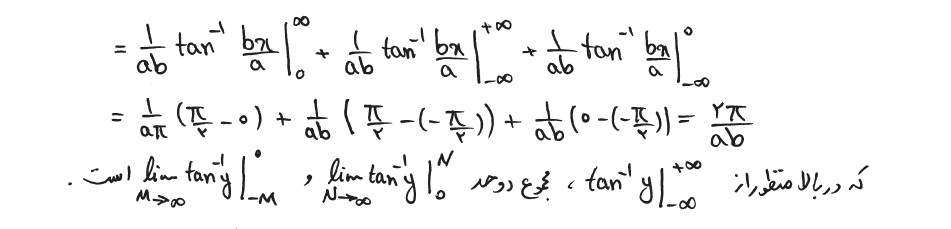 = 1/ab tan⁻¹ bx/a |₀^∞ + 1/ab tan⁻¹ bx/a |₋∞^+∞ + 1/ab tan⁻¹ bx/a |₋∞^0
= 1/aπ (π/۲ - ۰) + 1/ab (π/۲ - (-π/۲)) + 1/ab (۰ - (-π/۲)) = ۲π/ab
که در بالا منظور از tan⁻¹ y |₋∞^+∞ ، مجموع دو حد lim N→∞ tan⁻¹ y |₀^N و lim M→∞ tan⁻¹ y |₋M^۰ است .